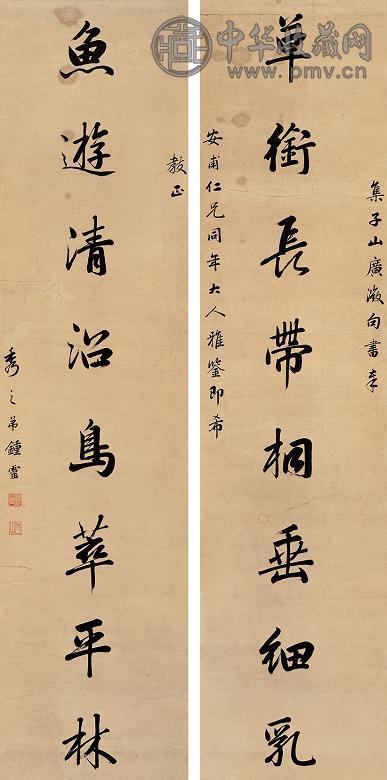 中华收藏网
www.pmv.cn
集子山廣句書奉
草銜長帶桐垂細乳
安甫仁兄同年大人雅鑒即希
教正
魚遊清沼鳥萃平林
秀之弟鍾靈